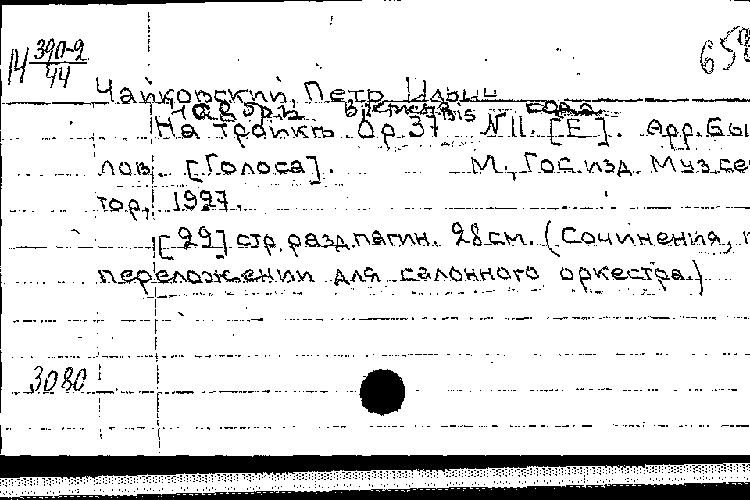 М 390-2
44
658
Чайковский, Петр Ильич
Времена года
На тройке Op 37 bis N 11. [E]. Арр. Бы
лов. [Голоса]. М., Гос. изд. Муз. сек
тор, 1927.
[29] стр. разд. пагин. 28 см. (Сочинения, в
переложении для салонного оркестра.)
3080